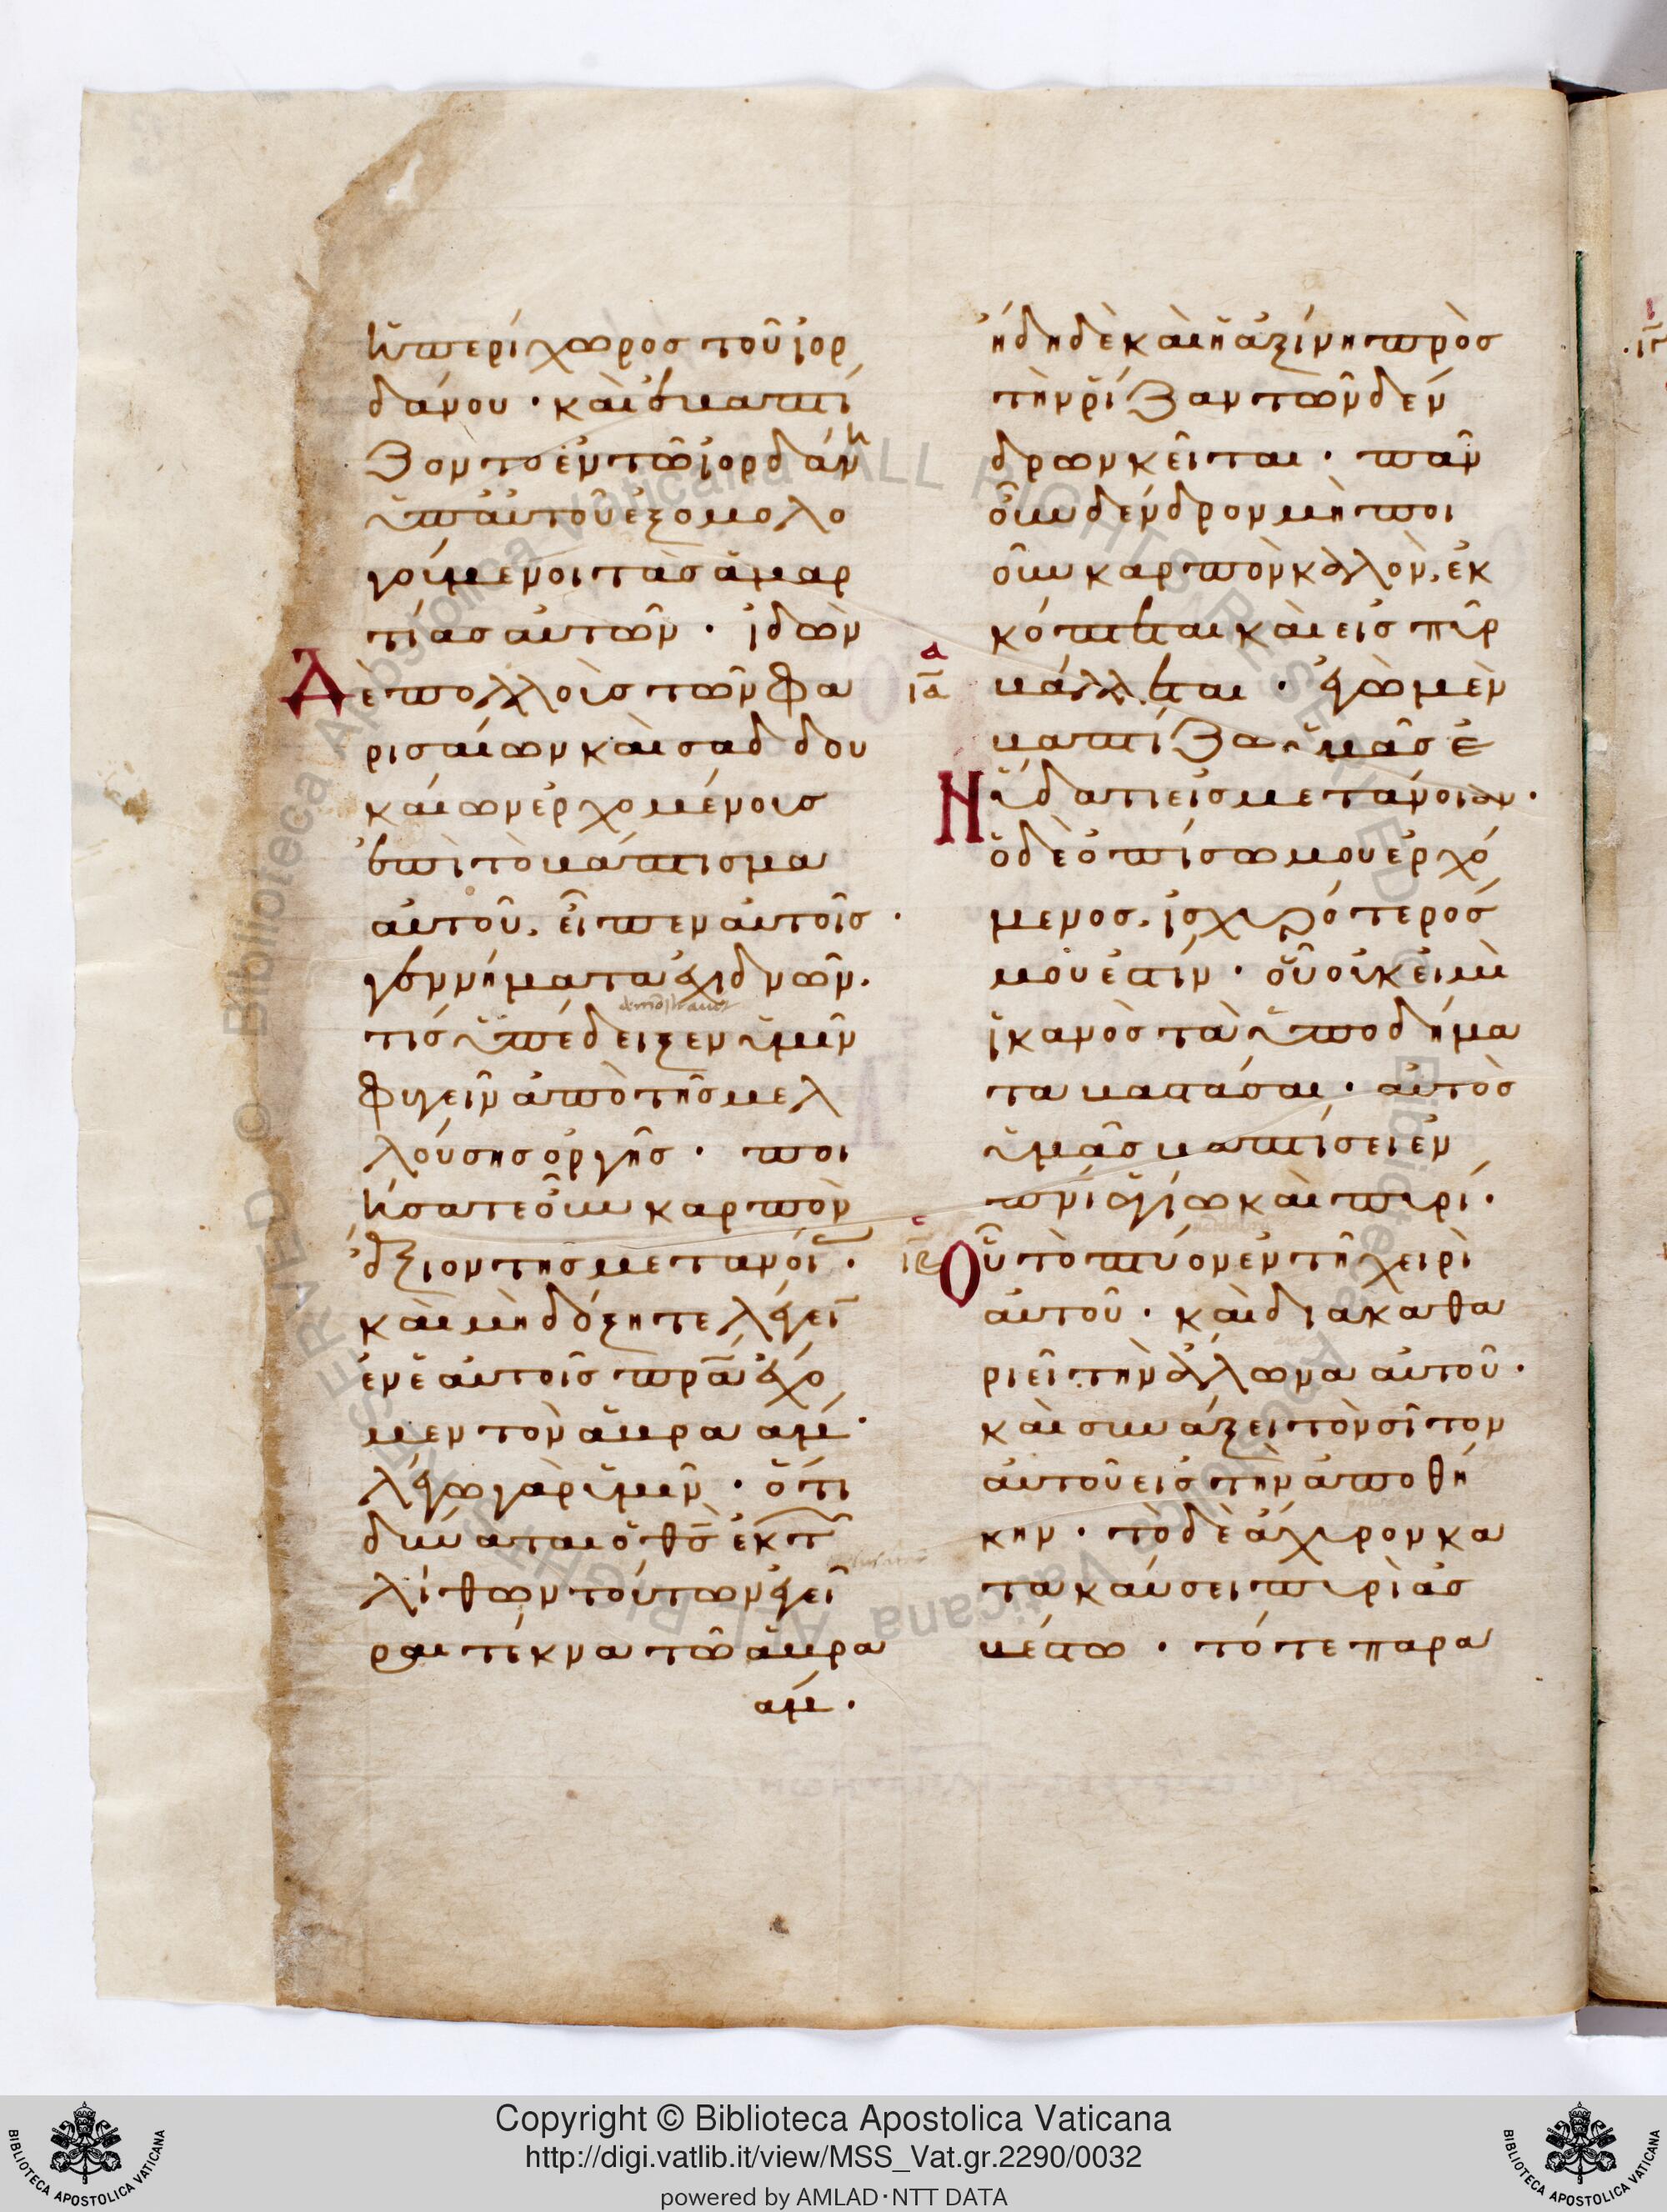 ἡ περίχωρος τοῦ ἰορ
δάνου · καὶ ἐβαπτί
ζοντο ἐν τῶ ἰορδάνη
ὑπ αὐτοῦ ἐξομολο
γούμενοι τὰς ἁμαρ
τίας αὐτῶν · ἰδὼν
Δὲ πολλοὺς τῶν φα
ρισαίων καὶ σαδδου
καίων ἐρχομένους
ἐπὶ τὸ βάπτισμα
αὐτοῦ, εἶπεν αὐτοῖς ·
γεννήματα ἐχιδνῶν.
τίς ὑπέδειξεν ὑμῖν
φυγεῖν ἀπὸ τῆς μελ
λούσης ὀργῆς · ποι
ήσατε οὖν καρπὸν
ἄξιον τῆς μετανοί ·
καὶ μὴ δόξητε λέγει
ἐν ἑαυτοῖς πρα ἔχο
μεν τὸν ἀβρααμ ·
λέγω γὰρ ὑμῖν · ὅτι
δύναται ὁ θς ἐκ τ
λίθων τούτων ἐγεῖ
ραι τέκνα τῶ ἀβρα
αμ ·
ἤδη δὲ καὶ ἡ ἀξίνη πρὸς
τὴν ῥίζαν τῶν δέν
δρων κεῖται · πᾶν
οὖν δένδρον μὴ ποι
οῦν καρπὸν καλὸν, ἐκ
κόπτεται καὶ εἰς πῦρ
α
ια
βάλλεται · ἐγὼ μὲν
βαπτίζω ὑμᾶς ἐ
Ν ὕδατι εἰς μετάνοιαν ·
ὁ δὲ ὀπίσω μου ἐρχό
μενος, ἰσχυρότερός
μου ἐστίν · οὗ οὐκ εἰμὶ
ἱκανὸς τὰ ὑποδήμα
τα βαστάσαι · αὐτὸς
ὑμᾶς βαπτίσει ἐν
πνι ἁγίω καὶ πυρί ·
ε
ιβ
Οὗ τὸ πτύον ἐν τῆ χειρὶ
αὐτοῦ · καὶ διακαθα
ριεῖ τὴν ἅλωνα αὐτοῦ ·
καὶ συνάξει τὸν σῖτον
αὐτοῦ εἰς τὴν ἀποθή
κην · τὸ δὲ ἄχυρον κα
τακαύσει πυρὶ ἀσ
βέστω · τότε παρα
Copyright © Biblioteca Apostolica Vaticana
http://digi.vatlib.it/view/MSS_Vat.gr.2290/0032
powered by AMLAD·NTT DATA
BIBLIOTECA APOSTOLICA VATICANA
BIBLIOTECA APOSTOLICA VATICANA